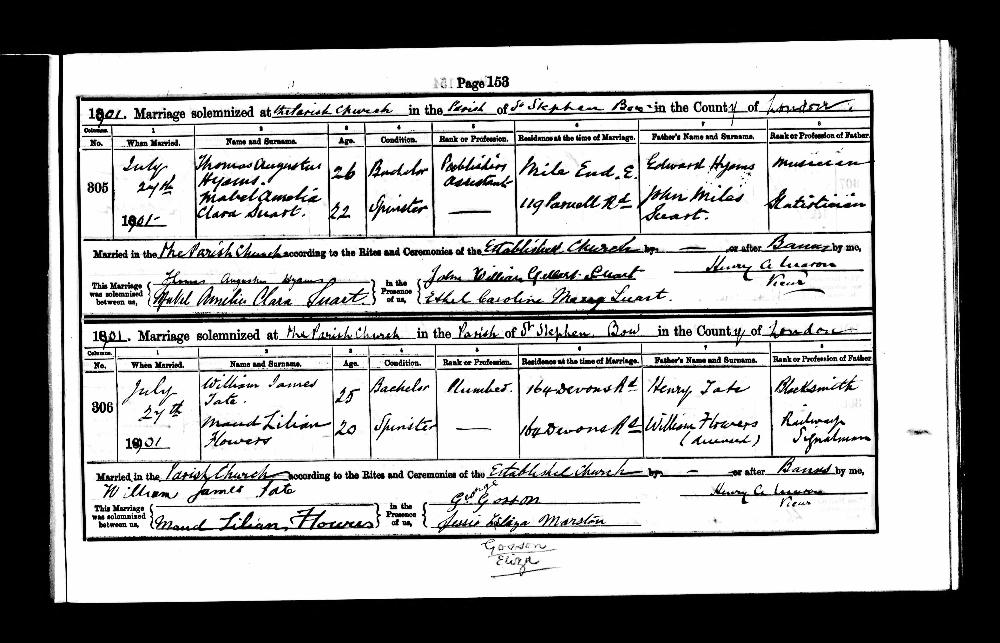 Page 153
1901. Marriage solemnized at the Parish Church in the Parish of St Stephen Bow in the County of London.
Columns. 1 2 3 4 5 6 7 8
No. When Married. Name and Surname. Age. Condition. Rank or Profession. Residence at the time of Marriage. Father's Name and Surname. Rank or Profession of Father.
305
July 27th 1901
Thomas Augustus Hyams.
26 Bachelor
Publishers assistant
Mile End. E.
Edward Hyams
Musician
Mabel Amelia Clara Suart.
22 Spinster
—
119 Parnell Rd
John Miles Suart.
Married in the the Parish Church according to the Rites and Ceremonies of the Established Church by — or after Banns by me,
Thomas Augustus Hyams
Mabel Amelia Clara Suart.
This Marriage was solemnized between us,
in the Presence of us,
John William Gilbert Suart
Ethel Caroline Suart.
Henry A.
Vicar
1901. Marriage solemnized at the Parish Church in the Parish of St Stephen, Bow in the County of London
Columns. 1 2 3 4 5 6 7 8
No. When Married. Name and Surname. Age. Condition. Rank or Profession. Residence at the time of Marriage. Father's Name and Surname. Rank or Profession of Father
306
July 27th 1901
William James Tate.
25 Bachelor
Plumber.
164 Devons Rd
Henry Tate
Blacksmith
Maud Lilian Flowers
20 Spinster
—
164 Devons Rd
William Flowers (deceased)
Railway Signalman
Married in the Parish Church according to the Rites and Ceremonies of the Established Church by — or after Banns by me,
William James Tate
Maud Lilian Flowers
This Marriage was solemnized between us,
in the Presence of us,
George Gosson
Jessie Eliza Marston
Henry A.
Vicar
Gosson
Eliza